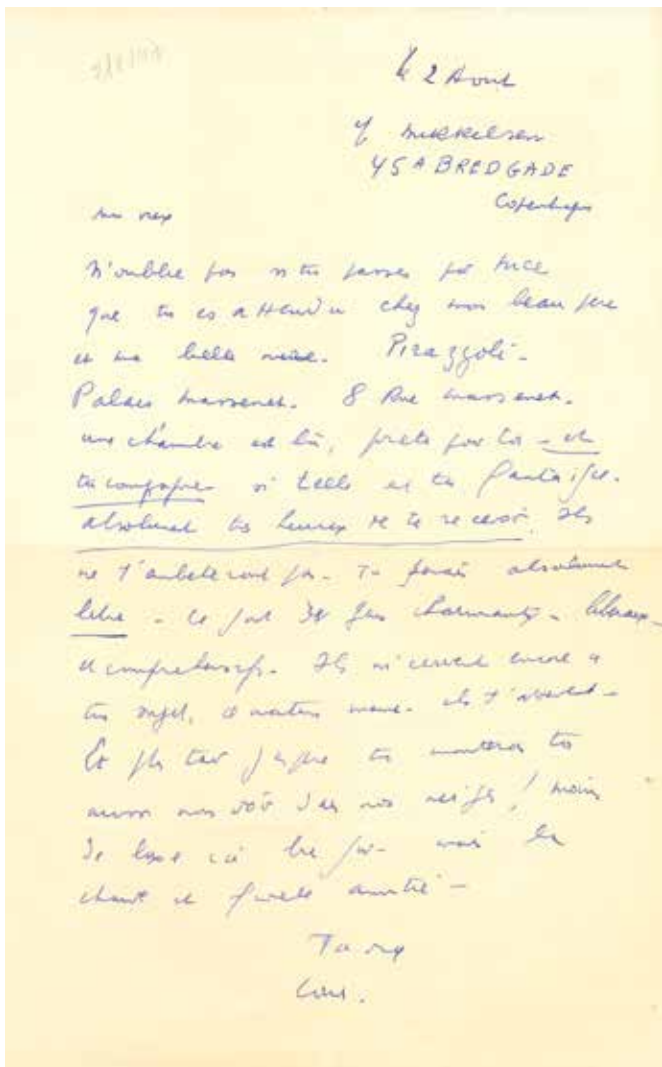 le 2 Aout
c/ Mikkelsen
45 A BREDGADE
Copenhague
Mon vieux
N'oublie pas si tu passes par Nice
que tu es attendu chez mon beau père
et ma belle mère. Pirazzoli -
Palais Massenet. 8 Rue Massenet.
une chambre est là, prete pour toi - et
ta compagne si telle est ta fantaisie.
absolument très heureux de te recevoir. Ils
ne t'embeteront pas. Tu seras absolument
libre - Ce sont des gens charmants - libéraux -
et compréhensifs. Ils m'ecrivent encore a
ton sujet, ce matin meme. ils t'attendent -
Et plus tard j'espère tu monteras
aussi nous voir dans nos neiges ! moins
de luxe ici bien sur - mais la
chaude et fidele amitié -
Ton vieux
Louis.